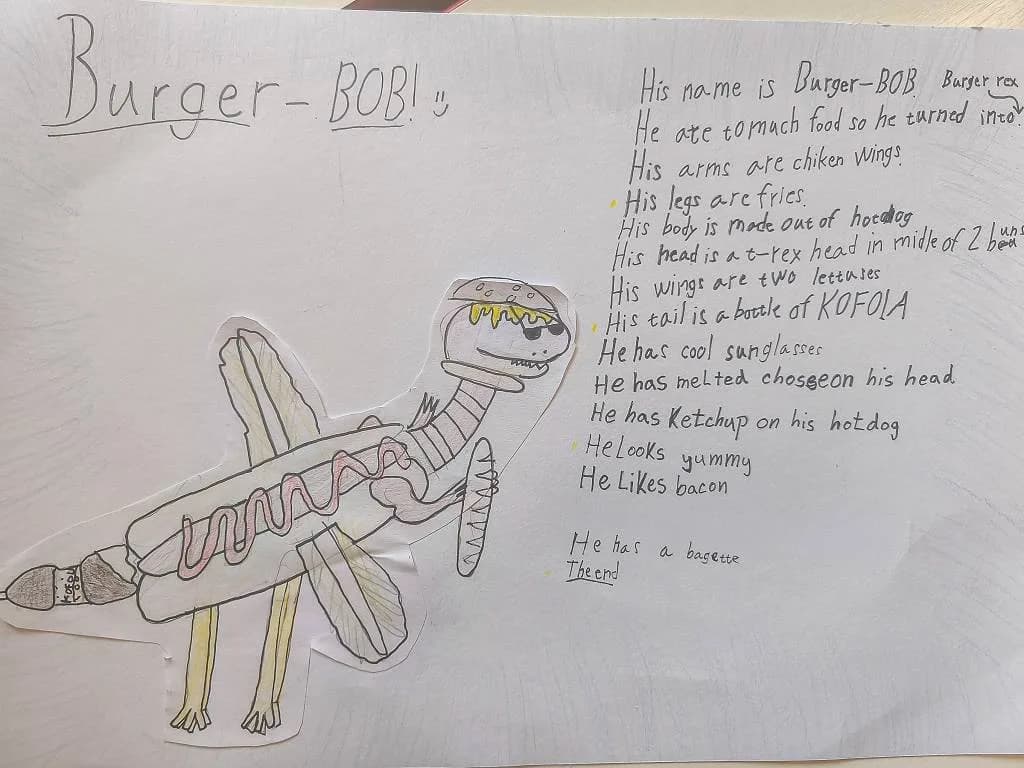 Burger-BOB!
His name is Burger-BOB Burger rex
He ate tomuch food so he turned into
His arms are chiken wings.
His legs are fries.
His body is made out of hotdog
His head is a t-rex head in midle of 2 buns
His wings are two lettuses
His tail is a bottle of KOFOLA
He has cool sunglasses
He has melted on his head
He has Ketchup on his hotdog
He Looks yummy
He Likes bacon
He has a bagette
The end